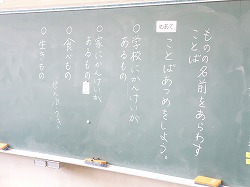 ものの名前をあらわす
ことば
めあて
ことばあつめをしよう。
○学校にかんけいが
あるもの
○家にかんけいが
あるもの
○食べもの
○生きもの